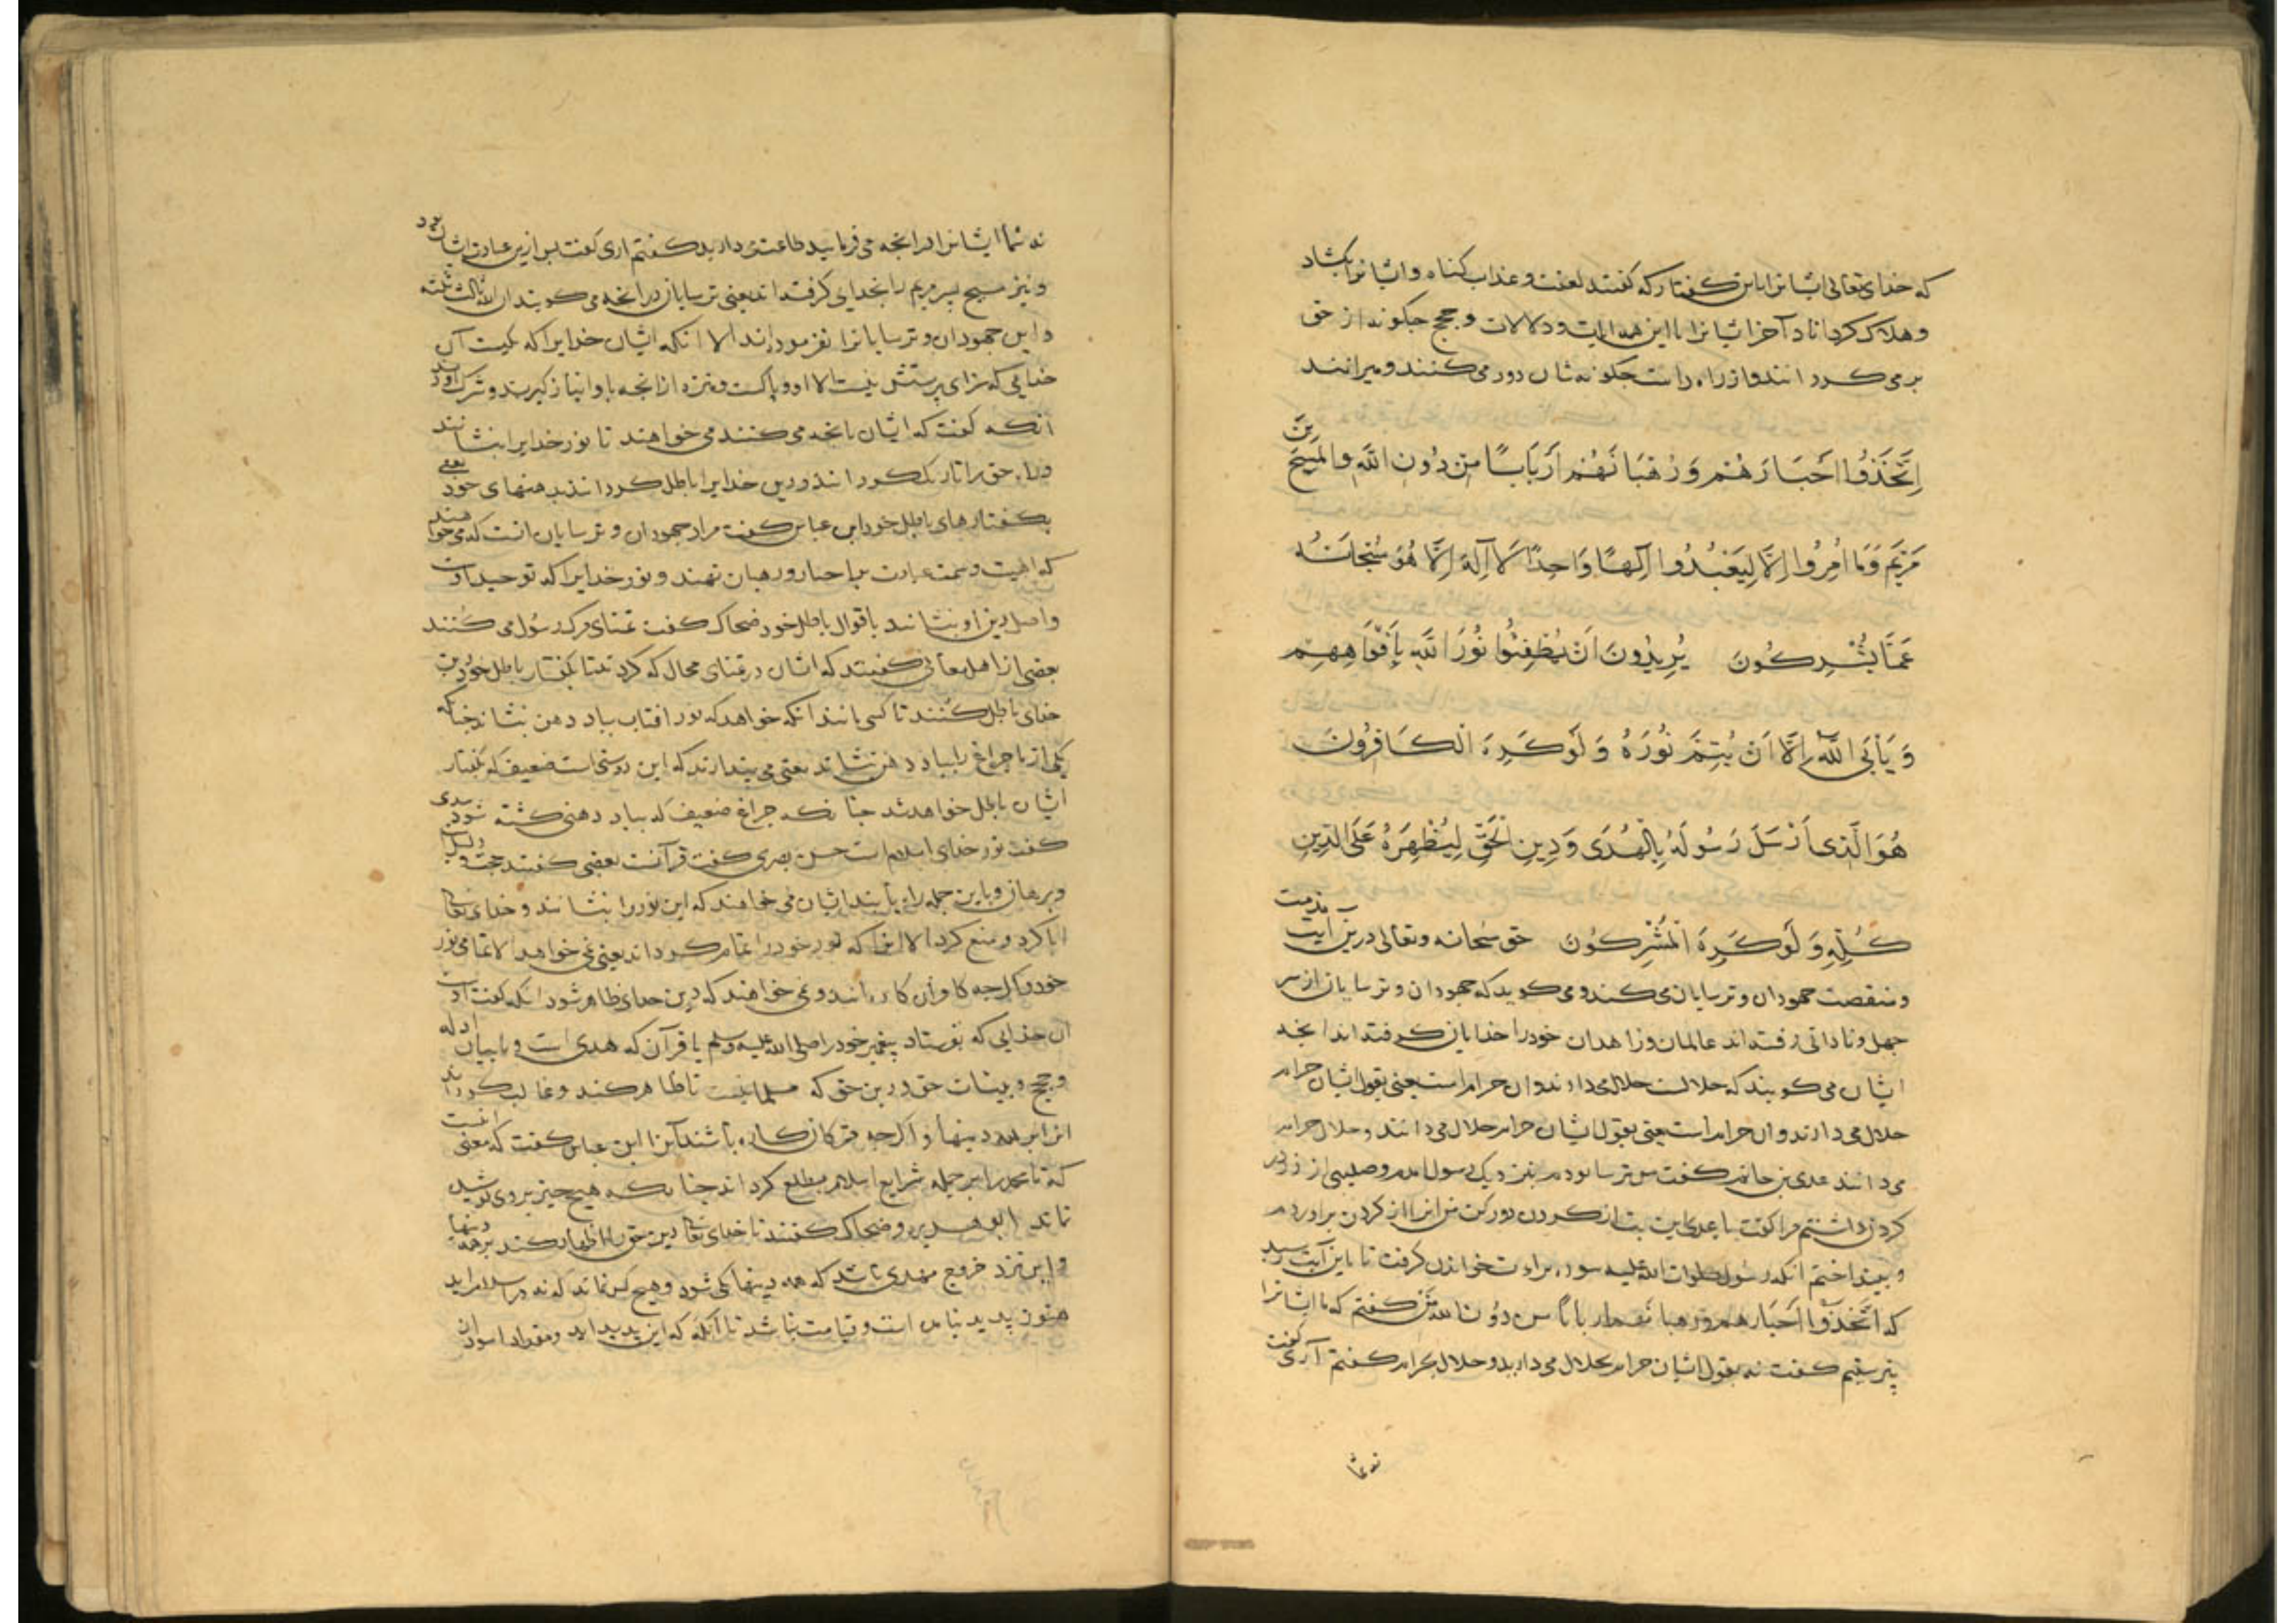 که خدای تعالی ایشانرا باین گفتار که گفتند لعنت و عذاب کناه و ایشانرا بکشاد
و هلاک کرداناد آخر ایشانرا با این همه ایات و دلالات و حجج چگونه از حق
بر می کردانند و از راه راست چگونه شان دور می کنند و میرانند
اِتَّخَذُوا اَحْبَارَهُمْ وَرُهْبَانَهُمْ اَرْبَابًا مِنْ دُونِ اللَّهِ وَالْمَسِيحَ بْنَ
مَرْيَمَ وَمَا اُمِرُوا اِلَّا لِيَعْبُدُوا اِلَهًا وَاحِدًا لَا اِلَهَ اِلَّا هُوَ سُبْحَانَهُ
عَمَّا يُشْرِكُونَ يُرِيدُونَ اَنْ يُطْفِئُوا نُورَ اللَّهِ بِاَفْوَاهِهِمْ
وَيَأْبَى اللَّهُ اِلَّا اَنْ يُتِمَّ نُورَهُ وَلَوْ كَرِهَ الْكَافِرُونَ
هُوَ الَّذِي اَرْسَلَ رَسُولَهُ بِالْهُدَى وَدِينِ الْحَقِّ لِيُظْهِرَهُ عَلَى الدِّينِ
كُلِّهِ وَلَوْ كَرِهَ الْمُشْرِكُونَ حق سبحانه و تعالی درین آیت مذمت
و منقصت جهودان و ترسایان می کند و می کوید که جهودان و ترسایان از سر
جهل و نادانی رفته اند عالمان و زاهدان خود را خدایان کرفته اند انچه
ایشان می کویند که حلالست حلال می دارند و ان حرام است یعنی بقول ایشان حرام
حلال می دارند و ان حرام است یعنی بقول ایشان حرام حلال می دانند و حلال حرام
می دانند عدی بن حاتم کفت من ترسا بودم بنزدیک رسول امدم و صلیبی از زر در
کردن داشتم مرا کفت یا عدی این بت از کردن دور کن من انرا از کردن براوردم
و بینداختم انکه رسول صلوات الله علیه سوره براءت خواندن کرفت تا باین آیت رسید
که اتخذوا احبارهم و رهبانهم اربابا من دون الله من کفتم که ما ایشانرا
نپرستیم کفت نه بقول ایشان حرام بحلال می دارید و حلال بحرام کفتم آری کفت
نه شما
نه شما ایشانرا در انچه می فرمایند طاعت می دارید کفتم اری کفت پس ازین عبادت ایشان بود
و نیز مسیح پسر مریم را بخدای کرفته اند یعنی ترسایان در انچه می کویند ان الله ثالث ثلثه
و این جهودان و ترسایانرا نفرموده اند الا انکه ایشان خدایرا که یکیست آن
خدایی که سزای پرستش نیست الا او و پاکست و منزه از انچه باو انباز کیرند و شرک اورند
انکه کفت که ایشان بانچه می کنند می خواهند تا نور خدایرا بنشانند
و راه حق را تاریک کردانند و دین خدایرا باطل کردانند بدهنهای خود یعنی
بکفتارهای باطل خود ابن عباس کفت مراد جهودان و ترسایان انست که می خواهند
که الهیت و سمت عبادت بر احبار و رهبان نهند و نور خدایرا که توحید اوست
و اصل دین او بنشانند باقوال باطل خود ضحاک کفت تمنای مرک رسول می کنند
بعضی از اهل معانی کفتند که ایشان درتمنای محال که کردند تا بکفتار باطل خود دین
خدای باطل کنند تا کسی مانند انکه خواهد که نور افتاب بباد دهن بنشاند چنانکه
یکی از ما چراغ را بباد دهن بنشاند یعنی می پندارند که این روشنی است ضعیف که بکفتار
ایشان باطل خواهد شد چنانکه چراغ ضعیف که بباد دهنی کشته شود سدی
کفت نور خدای اسلام است حسن بصری کفت قرآنست بعضی کفتند حجت و دلیل
و برهان و باین جمله راه یابند ایشان می خواهند که این نور را بنشانند و خدای تعالی
ابا کرد و منع کرد الا انرا که نور خود را تمام کرداند یعنی نمی خواهد الا تمامی نور
خود و اکرچه کافران کاره باشند و نمی خواهند که دین خدای ظاهر شود انکه کفت اوست
ان خدایی که بفرستاد پیغمبر خود را صلی الله علیه وسلم با قرآن که هدی است و با بیان ادله
و حجج و بینات حق و دین حق که مسلمانیست تا ظاهر کند و غالب کرداند
انرا بر همه دینها و اکرچه مشرکان کاره باشند آنرا ابن عباس کفت که معنی انست
که تا محمد را بر جمله شرایع اسلام مطلع کرداند چنانکه هیچ چیز بر وی پوشیده
نماند ابو هریره و ضحاک کفتند تا خدای تعالی دین حق را اظهار کند بر همه دینها
و این نزد خروج مهدی باشد که همه دینها یکی شود و هیچ کس نماند که نه در اسلام اید
هنوز پدید نیامده است و قیامت نباشد تا آنکه که این پدید اید و مقداد اسود